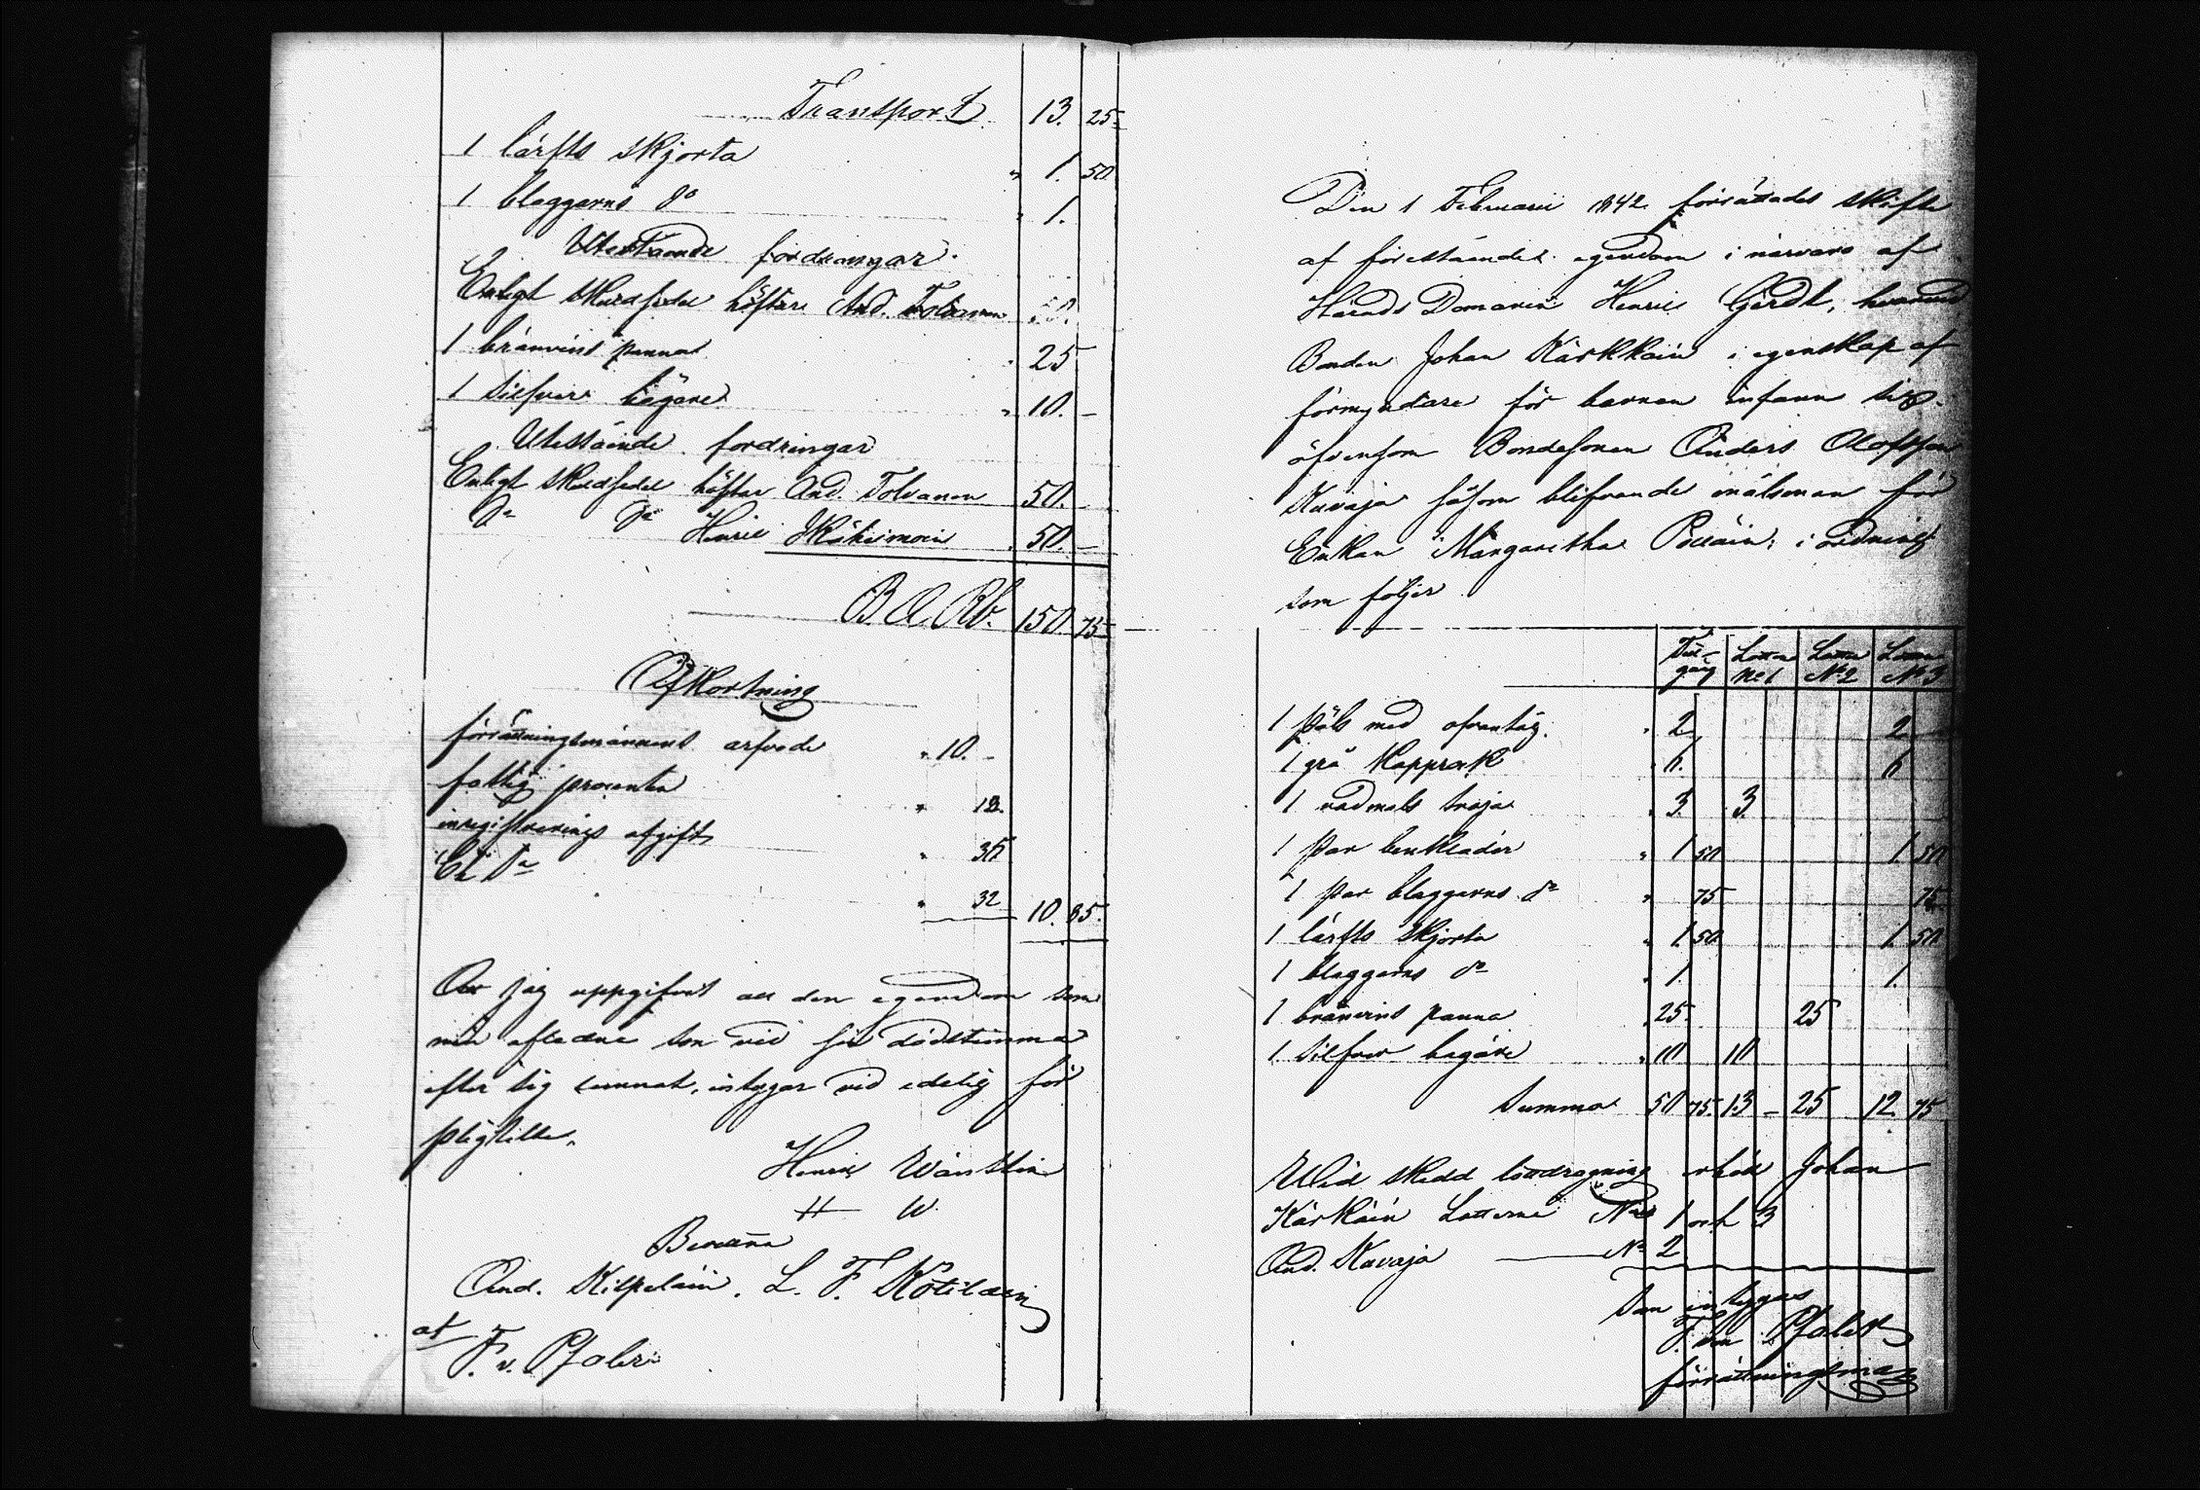 Transport 13. 25
1 lärfts skjorta " 1. 50
1 blaggarns do " 1.
Utestående fordringar.
Enligt skuldsedel häftar And. Tolvanen 50.
1 bränvins panna " 25
1 silfver bägare " 10. –
Utestående fordringar
Enligt skuldsedel häftar And. Tolvanen 50. –
do do Henric 50. –
B. A. Rb. 150. 75
Afkortning
förrättningsmännens arfvode " 10. –
fattig procenten "
inregistrerings afgift "
" 32 10. 85.
jag uppgifvit all den egendom som
min aflidne son vid sin dödstimma
efter sig lemnat, intygar vid edelig för
pligtelse.
Henric
H W
Bevittna
And. Kilpeläin. L. F. Kotilain
at F. v. Pfaler
Den 1 Februarii 1842 förrättades skifte
af förestående egendom i närvaro af
Härads Domaren Henric hvarvid
Bonden Johan Kärkkäin i egenskap af
förmyndare för barnen infann sig
äfvensom Bondesonen Anders Olofsson
Kuvaja såsom blifvande målsman för
Enkan Margaretha i ordning
som följer
Till-gång Lotten No 1 Lotten No 2 Lotten No 3
1 päls med ofvantåg. " 2 2
1 grå kapprock " 6. 6
1 vadmals tröja " 3. 3.
1 par benkläder " 1 50 1. 50
1 par blaggarns do " 75 75
1 lärfts skjorta " 1. 50 1. 50
1 blaggarns do " 1. 1.
1 bränvins panna " 25. 25
1 silfver bägare " 10 10
Summa 50 75. 13 – 25 12. 75
Wid skedd lottdragning erhöll Johan
Kärkäin Lotterne No 1 och 3
And. Kuvaja — No 2
Som intygas
F. von Pfaler
förrättningsman